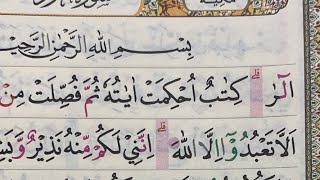 بِسْمِ اللّٰهِ الرَّحْمٰنِ الرَّحِيْمِ
الٓرٰ كِتٰبٌ اُحْكِمَتْ اٰيٰتُهٗ ثُمَّ فُصِّلَتْ مِنْ
اَلَّا تَعْبُدُوْۤا اِلَّا اللّٰهَ اِنَّنِيْ لَكُمْ مِّنْهُ نَذِيْرٌ وَّ